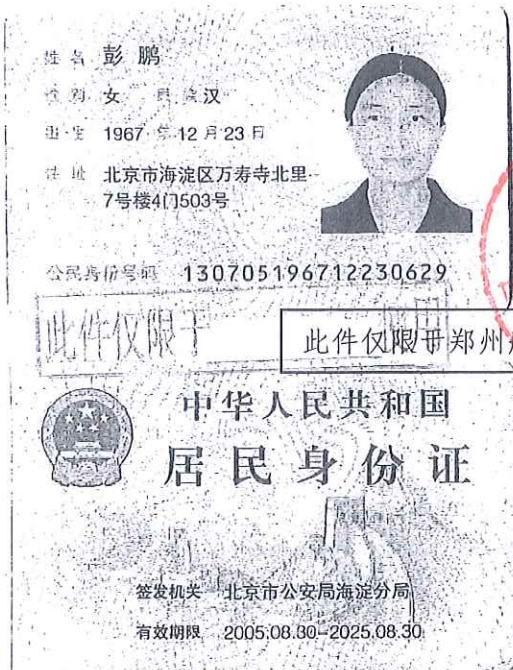 姓名 彭鹏
性别 女 民族 汉
出生 1967 年 12 月 23 日
住址 北京市海淀区万寿寺北里
7号楼4门503号
公民身份号码 130705196712230629
此件仅限于
此件仅限于郑州
中华人民共和国
居民身份证
签发机关 北京市公安局海淀分局
有效期限 2005.08.30-2025.08.30